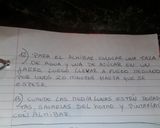 12) PARA EL ALMIBAR COLOCAR UNA TAZA
DE AGUA Y UNA DE AZUCAR EN UN
JARRO LUEGO LLEVAR A FUEGO MEDIANO
POR UNOS 20 MINUTOS HASTA QUE SE
ESPESE.
CUANDO LAS MEDIALUNAS ESTEN DORA-
TAS, SACARLAS DEL HORNO Y PINTARLAS
CON ALMIBAR.